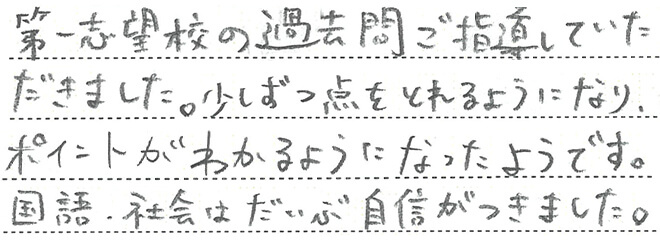 第一志望校の過去問ご指導していた
だきました。少しずつ点をとれるようになり、
ポイントがわかるようになったようです。
国語・社会はだいぶ自信がつきました。